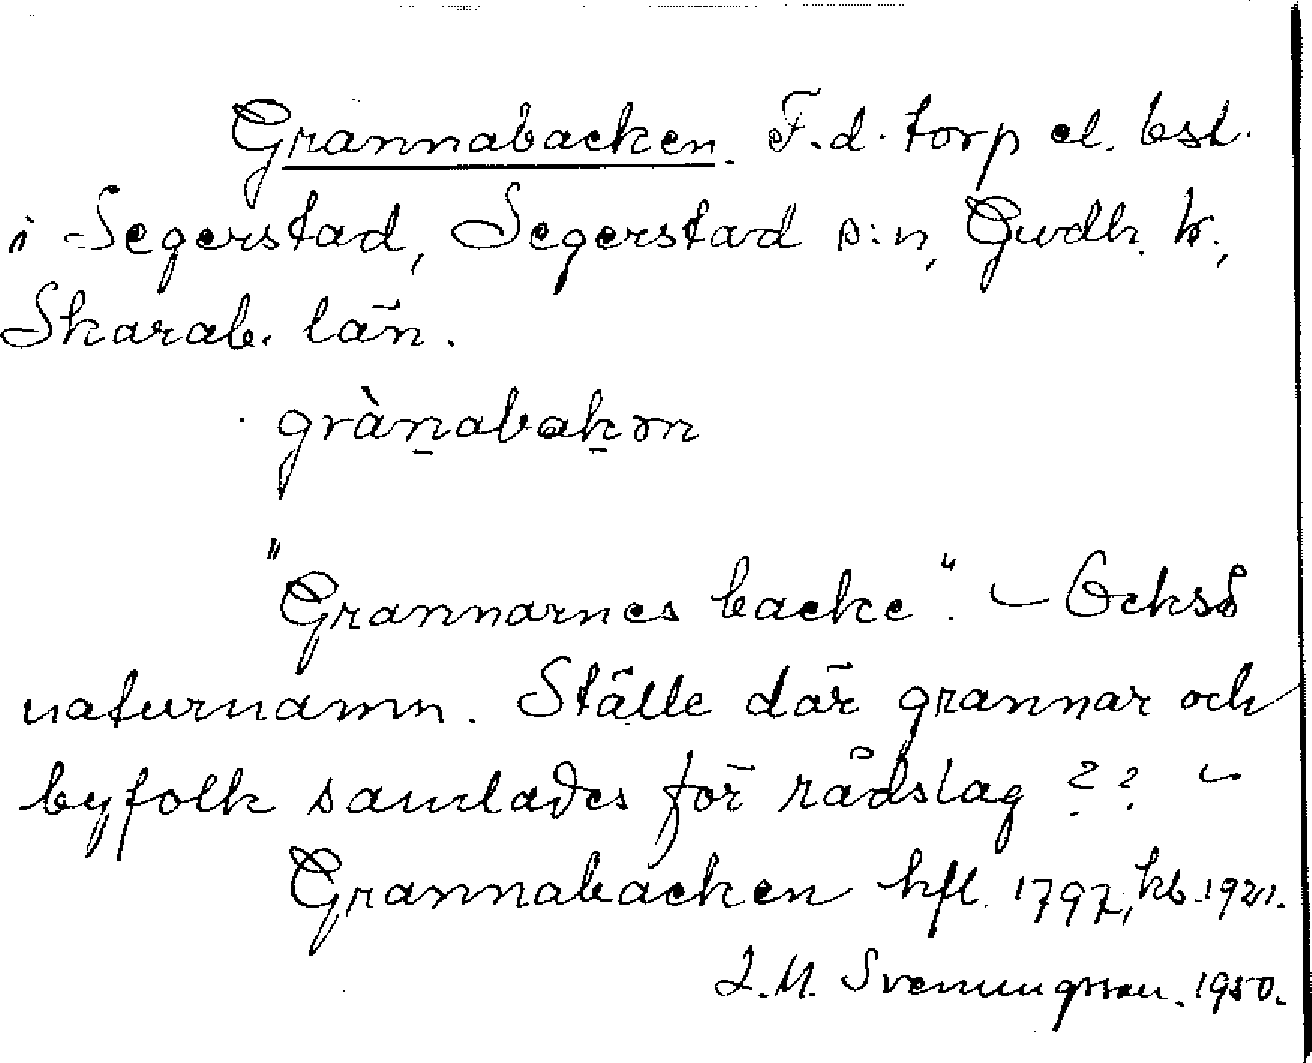 Grannabacken. F.d. torp el. bst.
i Segerstad, Segerstad s:n, Gudh. h.,
Skarab. län.
grànabakən
"Grannarnes backe". – Också
naturnamn. Ställe där grannar och
byfolk samlades för rådslag ?? –
Grannabacken hfl. 1797, kb. 1921.
Svenungsson. 1950.